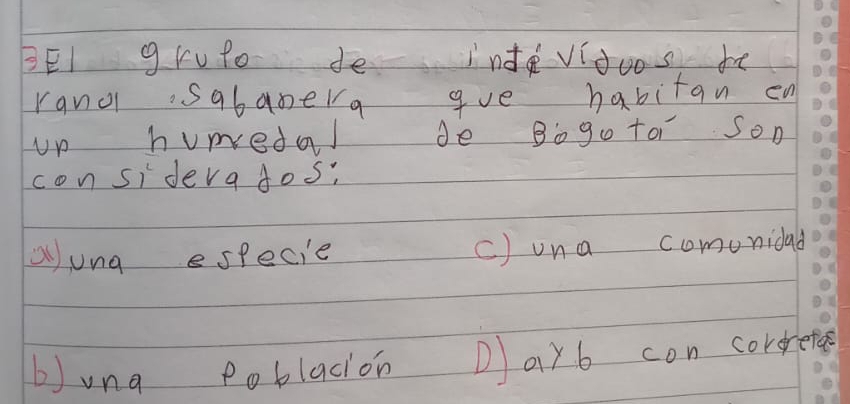 3 El grupo de individuos de
rana sabanera que habitan en
un humedal de Bogotá son
considerados:
a) una especie c) una comunidad
b) una población D) a y b son correctas